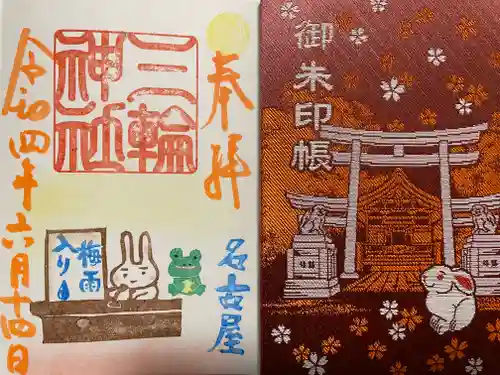 奉拝
三輪
神社
令和四年六月十四日
梅雨
入り
名古屋
御朱印帳